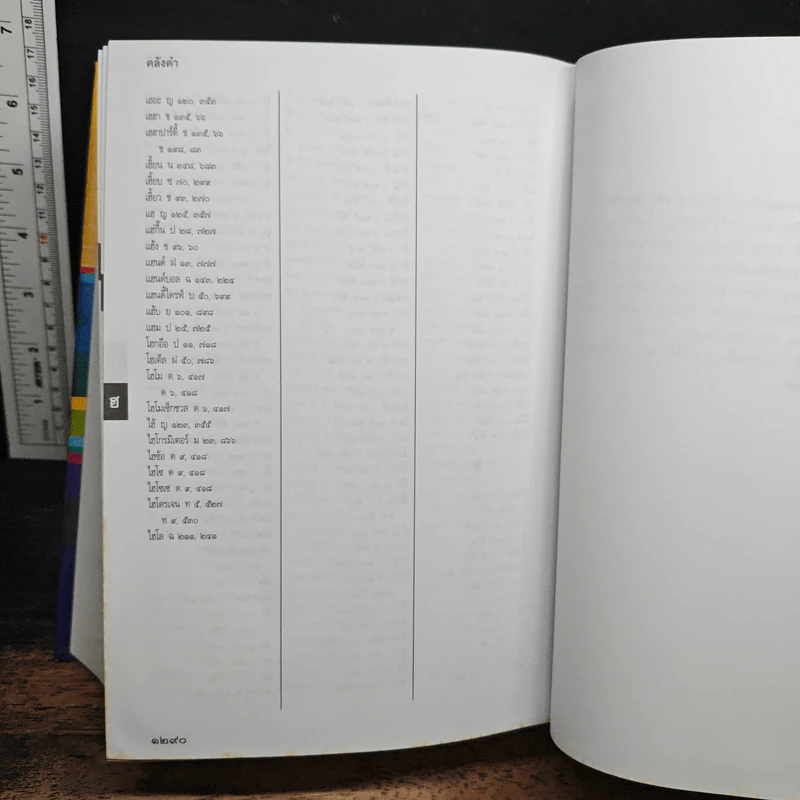 คลังคำ
เฮอะ ญ ๑๒๐, ๓๕๓
เฮฮา ช ๑๓๕, ๖๖
เฮฮาปาร์ตี้ ช ๑๓๕, ๖๖
ช ๑๙๘, ๘๓
เฮี้ยน น ๓๔๘, ๖๘๓
เฮี้ยบ ซ ๗๐, ๒๙๙
เฮี้ยว ซ ๙๓, ๒๗๐
แฮ ญ ๑๒๕, ๓๕๗
แฮกึ้น ป ๒๘, ๗๒๗
แฮ้ง ช ๙๖, ๖๐
แฮนด์ ฝ ๑๓, ๗๗๗
แฮนด์บอล ฉ ๑๔๓, ๒๒๔
แฮนดี้ไดรฟ์ บ ๕๐, ๖๙๙
แฮ้บ ย ๑๐๑, ๘๙๘
แฮม ป ๒๕, ๗๒๕
โฮกฮือ ป ๑๑, ๗๑๘
โฮเต็ล ฝ ๕๐, ๗๘๖
โฮโม ด ๖, ๔๑๗
ด ๖, ๔๑๘
โฮโมเซ็กชวล ด ๖, ๔๑๗
ไฮ้ ญ ๑๒๓, ๓๕๕
ไฮโกรมิเตอร์ ม ๒๓, ๘๖๖
ไฮซ้อ ด ๙, ๔๑๘
ไฮโซ ด ๙, ๔๑๘
ไฮโซเซ ด ๙, ๔๑๘
ไฮโดรเจน ท ๕, ๕๒๗
ท ๙, ๕๓๐
ไฮโล ฉ ๒๑๑, ๒๔๑
ฮ
๑๒๙๐
7
6
5
4
3
2
1
18
17